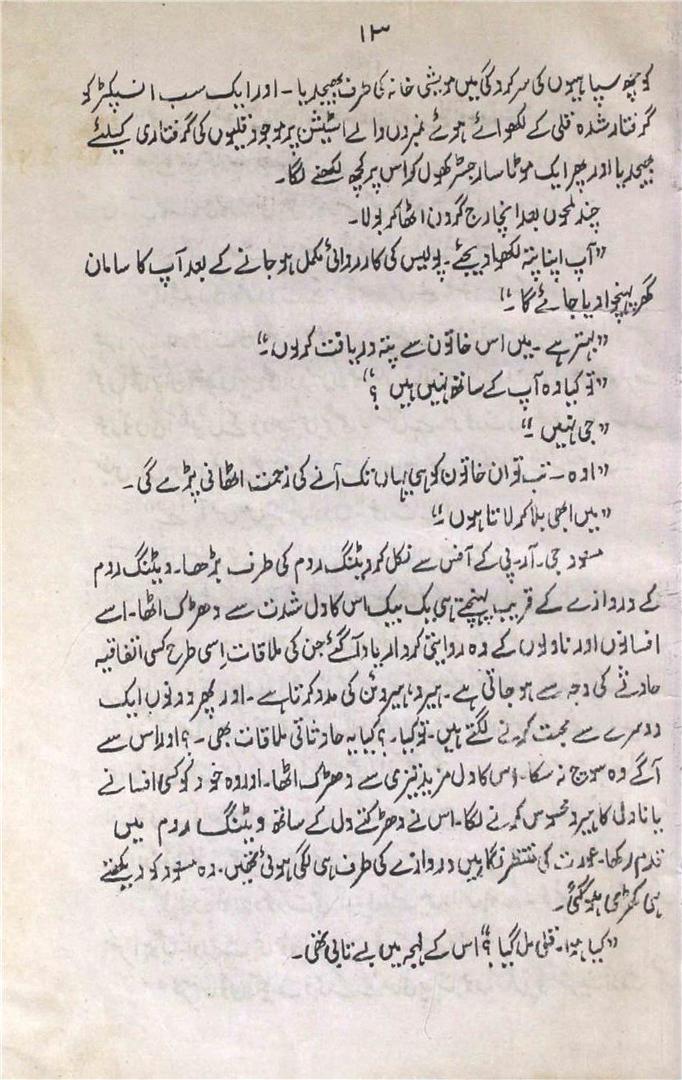 ۱۳
کو چھ سپاہیوں کی سرکردگی میں مویشی خانہ کی طرف بھیجدیا۔ اور ایک سب انسپکٹر کو
گرفتار شدہ قلی کے لکھوائے ہوئے نمبروں والے اسٹیشن پر موجود قلیوں کی گرفتاری کیلئے
بھیجدیا اور پھر ایک موٹا سا رجسٹر کھول کر اس پر کچھ لکھنے لگا۔
چند لمحوں بعد انچارج گردن اٹھا کر بولا۔
”آپ اپنا پتہ لکھوا دیجئے۔ پولیس کی کارروائی مکمل ہو جانے کے بعد آپ کا سامان
گھر پہنچوا دیا جائے گا۔“
”بہتر ہے۔ میں اس خاتون سے پتہ دریافت کر لوں۔“
”تو کیا وہ آپ کے ساتھ نہیں ہیں ؟“
”جی نہیں۔“
”اوہ۔ تب تو ان خاتون کو ہی یہاں تک آنے کی زحمت اٹھانی پڑے گی۔
”میں ابھی بلا کر لاتا ہوں۔“
مسعود جی۔ آر۔ پی کے آفس سے نکل کر ویٹنگ روم کی طرف بڑھا۔ ویٹنگ روم
کے دروازے کے قریب پہنچتے ہی یک بیک اس کا دل شدت سے دھڑک اٹھا۔ اسے
افسانوں اور ناولوں کے وہ روایتی کردار یاد آگئے جن کی ملاقات اِسی طرح کسی اتفاقیہ
حادثے کی وجہ سے ہو جاتی ہے۔ ہیرو، ہیروئن کی مدد کرتا ہے۔ اور پھر دونوں ایک
دوسرے سے محبت کرنے لگتے ہیں۔ تو کیا۔ ؟ کیا یہ حادثاتی ملاقات بھی۔ ؟ اور اس سے
آگے وہ سوچ نہ سکا۔ اس کا دل مزید تیزی سے دھڑک اٹھا۔ اور وہ خود کو کسی افسانے
یا ناول کا ہیرو محسوس کرنے لگا۔ اس نے دھڑکتے دل کے ساتھ ویٹنگ روم میں
قدم رکھا۔ عورت کی منتظر نگاہیں دروازے کی طرف ہی لگی ہوئی تھیں۔ وہ مسعود کو دیکھتے
ہی کھڑی ہو گئی۔
”کیا ہوا۔ قلی مل گیا ؟“ اس کے لہجہ میں بے تابی تھی۔